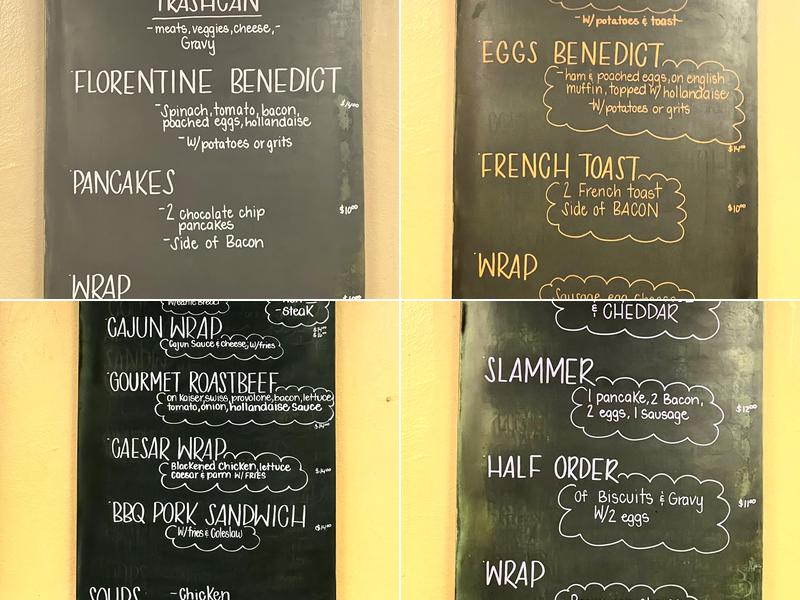 TRASHCAN
-meats, veggies, cheese,-
Gravy
FLORENTINE BENEDICT
-Spinach, tomato, bacon,
poached eggs, hollandaise
-W/potatoes or grits
PANCAKES
-2 chocolate chip
pancakes
$10⁰⁰
-Side of Bacon
WRAP
-W/potatoes & toast-
EGGS BENEDICT
-ham & poached eggs, on english
muffin, topped w/ hollandaise
-W/potatoes or grits
$14⁰⁰
FRENCH TOAST
2 French toast
Side of BACON
$10⁰⁰
WRAP
Sausage, egg, cheese
-Steak
CAJUN WRAP
Cajun Sauce & cheese, w/fries
GOURMET ROASTBEEF
on Kaiser, swiss, provolone, bacon, lettuce
tomato, onion, hollandaise sauce
$14⁰⁰
CAESAR WRAP
Blackened Chicken, lettuce
caesar & parm W/FRIES
$14⁰⁰
BBQ PORK SANDWICH
W/fries & Coleslaw
$14⁰⁰
SOUPS -Chicken
& CHEDDAR
SLAMMER
1 pancake, 2 Bacon,
2 eggs, 1 sausage
$12⁰⁰
HALF ORDER
Of Biscuits & Gravy
W/2 eggs
$11⁰⁰
WRAP